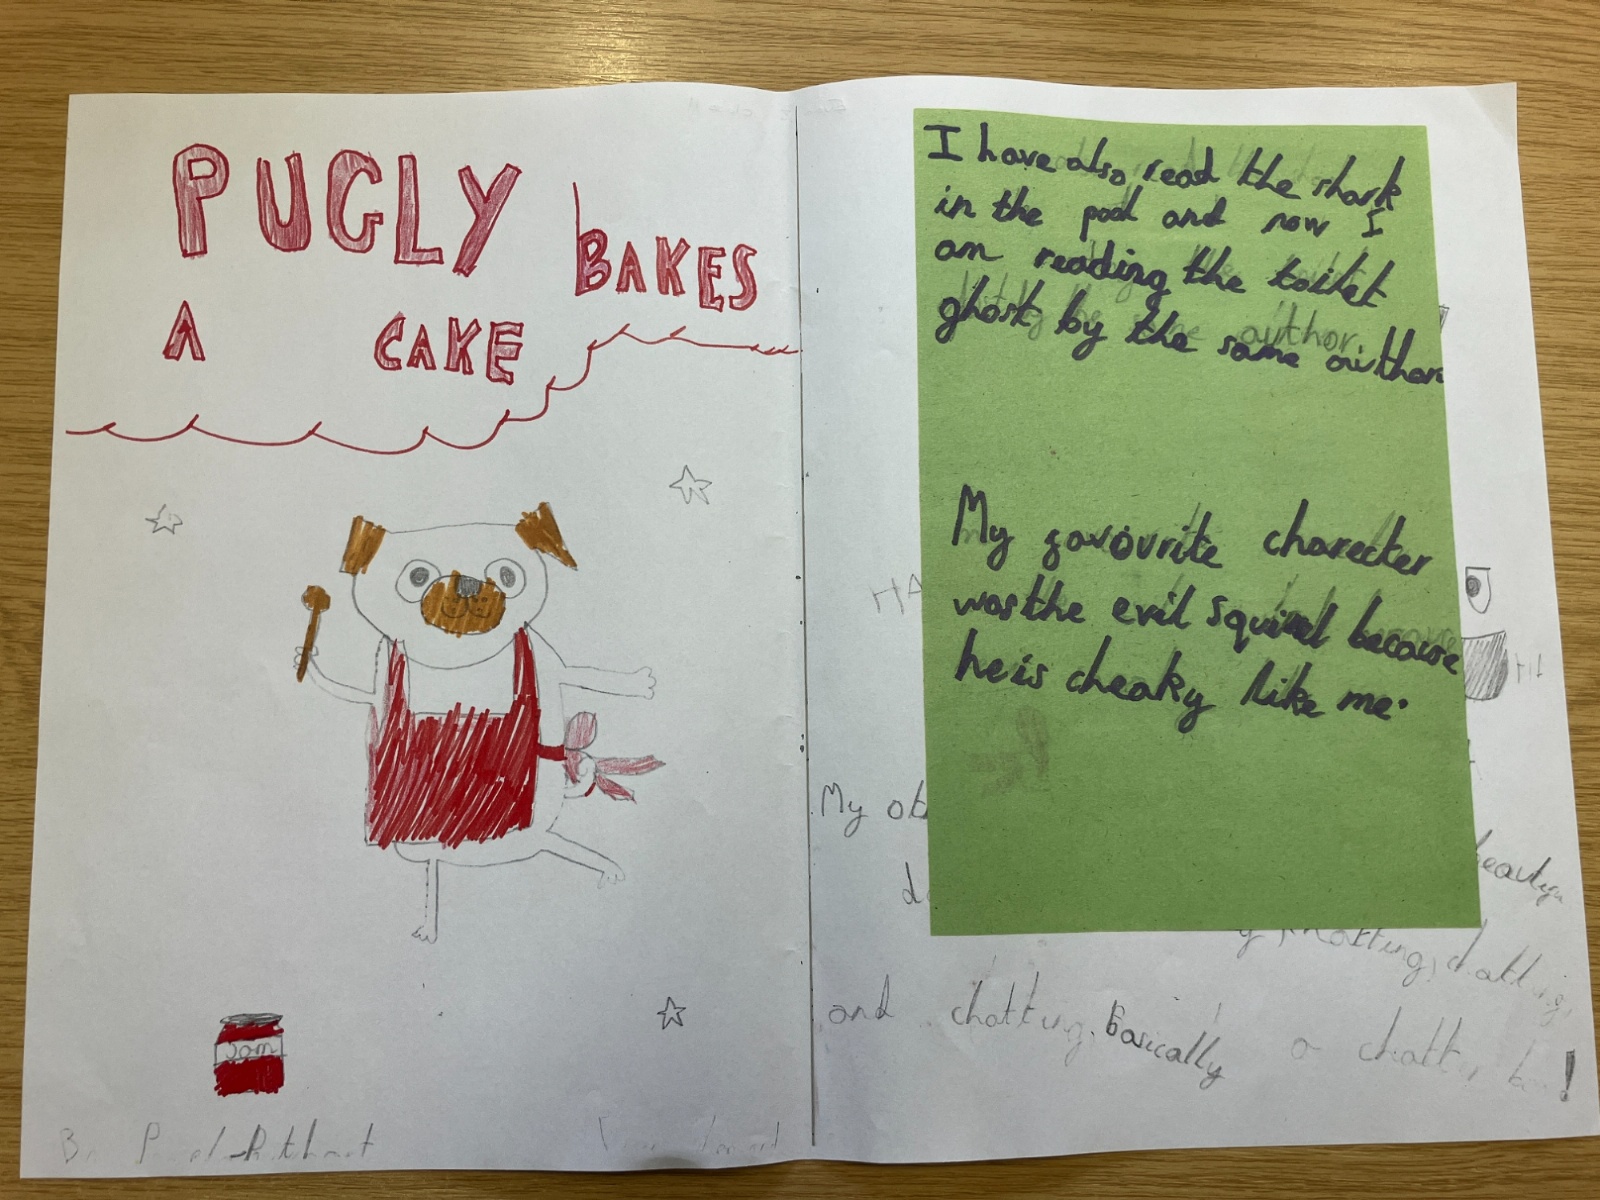 PUGLY BAKES
A CAKE
Jam
I have also read the shark
in the pool and now I
am reading the toilet
ghost by the same author
My favourite charecter
was the evil squirrel because
he is cheaky like me.
HA
HI
My
beauty
chatting, chatting,
and chatting, Basically a chatter !